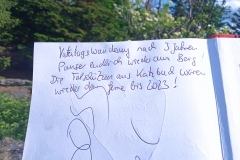 Katalogswanderung nach 3 Jahren
Pause endlich wieder am Berg!
Die aus Katzbud waren
wieder da. Gerne bis 2023!